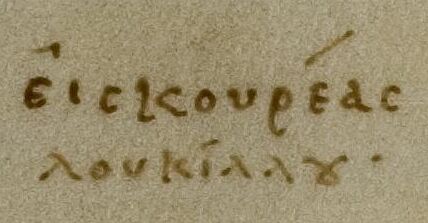 εἰς κουρέας
λουκίλλου·